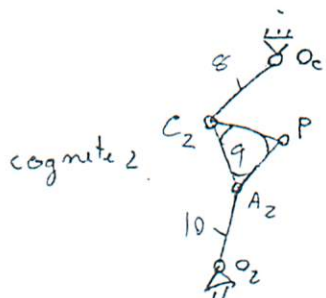 8
O_c
C_2
P
9
cognete 2.
A_2
10
O_2